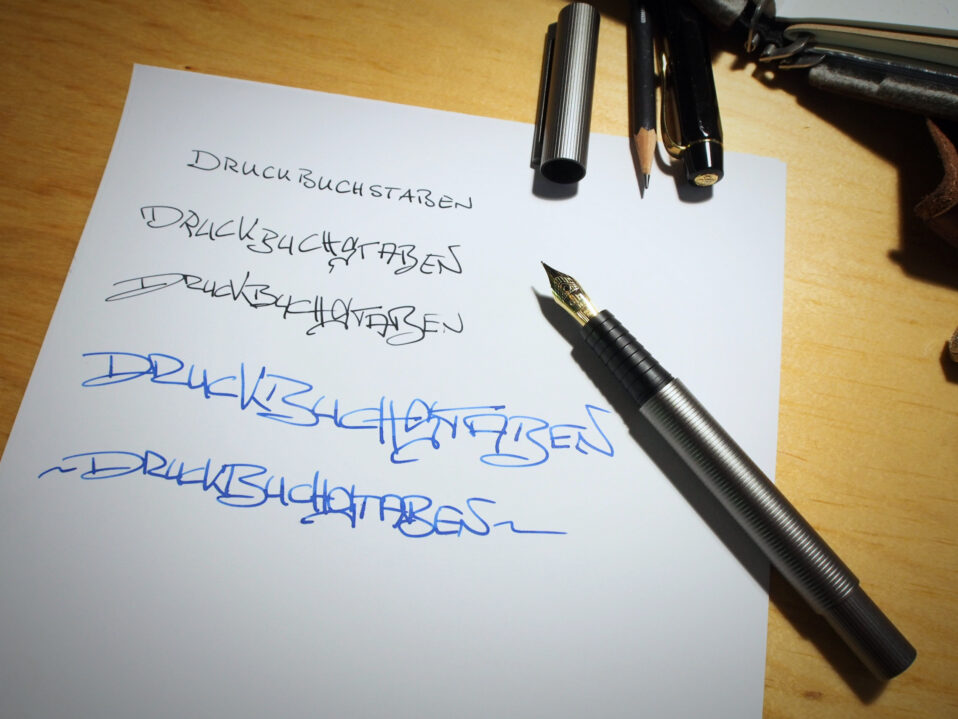 DRUCKBUCHSTABEN
DRUCKBUCHSTABEN
DRUCKBUCHSTABEN
DRUCKBUCHSTABEN
~DRUCKBUCHSTABEN~